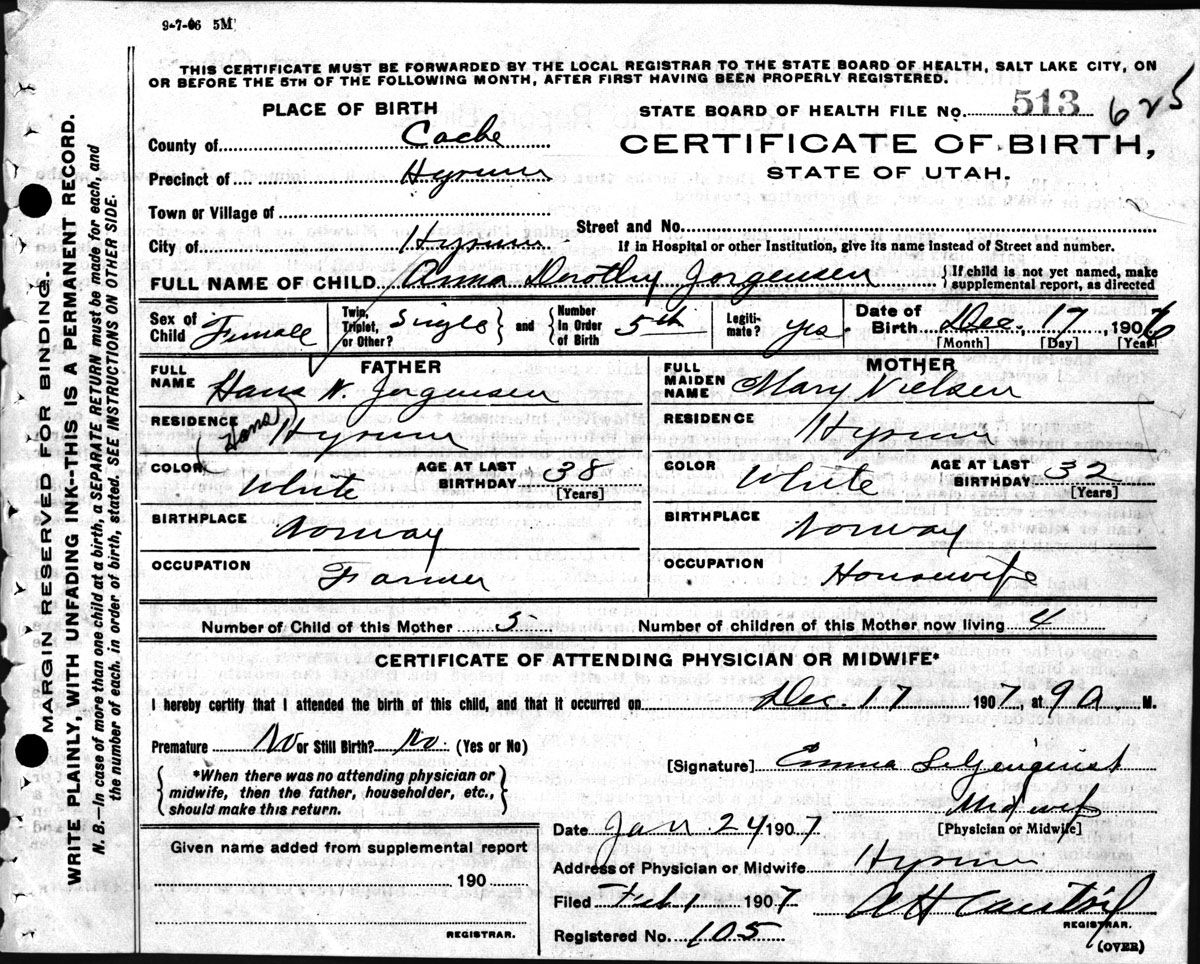 9-7-06 5M
THIS CERTIFICATE MUST BE FORWARDED BY THE LOCAL REGISTRAR TO THE STATE BOARD OF HEALTH, SALT LAKE CITY, ON
OR BEFORE THE 5TH OF THE FOLLOWING MONTH, AFTER FIRST HAVING BEEN PROPERLY REGISTERED.
MARGIN RESERVED FOR BINDING.
WRITE PLAINLY, WITH UNFADING INK--THIS IS A PERMANENT RECORD.
N. B.—In case of more than one child at a birth, a SEPARATE RETURN must be made for each, and
the number of each, in order of birth, stated. SEE INSTRUCTIONS ON OTHER SIDE.
PLACE OF BIRTH
County of Cache
Precinct of Hyrum
Town or Village of
City of Hyrum
STATE BOARD OF HEALTH FILE No. 513 625
CERTIFICATE OF BIRTH,
STATE OF UTAH.
Street and No.
If in Hospital or other Institution, give its name instead of Street and number.
FULL NAME OF CHILD Anna Dorothy Jorgensen { If child is not yet named, make
supplemental report, as directed
Sex of Child Female
Twin, Triplet, or Other? Single } and { Number In Order of Birth 5th
Legiti- mate? yes
Date of Birth Dec. 17, 1906
[Month] [Day] [Year]
FATHER
FULL NAME Hans N. Jorgensen
(Hans)
RESIDENCE Hyrum
COLOR White AGE AT LAST BIRTHDAY 38
[Years]
BIRTHPLACE Norway
OCCUPATION Farmer
MOTHER
FULL MAIDEN NAME Mary Nielsen
RESIDENCE Hyrum
COLOR White AGE AT LAST BIRTHDAY 32
[Years]
BIRTHPLACE Norway
OCCUPATION Housewife
Number of Child of this Mother 5 Number of children of this Mother now living 4
CERTIFICATE OF ATTENDING PHYSICIAN OR MIDWIFE*
I hereby certify that I attended the birth of this child, and that it occurred on Dec. 17 1907 at 9 a. M.
Premature No or Still Birth? No. (Yes or No)
{ *When there was no attending physician or
midwife, then the father, householder, etc.,
should make this return. }
[Signature] Emma
Midwife
[Physician or Midwife]
Given name added from supplemental report
190
REGISTRAR.
Date Jan 24 1907
Address of Physician or Midwife Hyrum
Filed Feb 1 1907
Registered No. 105
REGISTRAR.
(OVER)